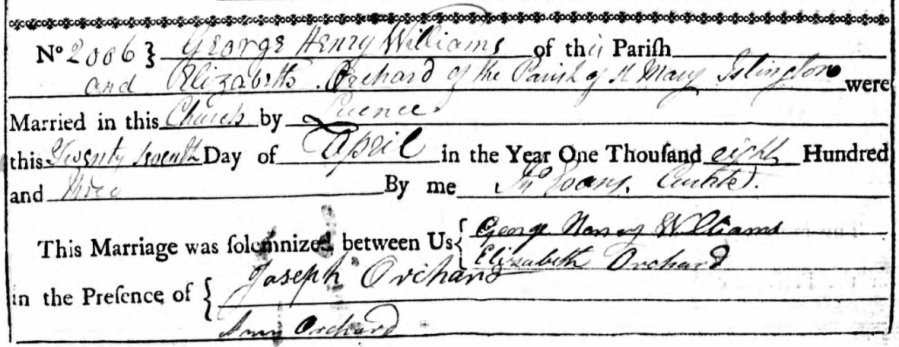 No 2006} George Henry Williams of this Parish
and Elizabeth Orchard of the Parish of St Mary Islington were
Married in this Church by Licence
this Twenty seventh Day of April in the Year One Thousand eight Hundred
and three By me Jno Evans, Curate.
This Marriage was solemnized between Us { George Henry Williams
Elizabeth Orchard
in the Presence of { Joseph Orchard
Ann Orchard